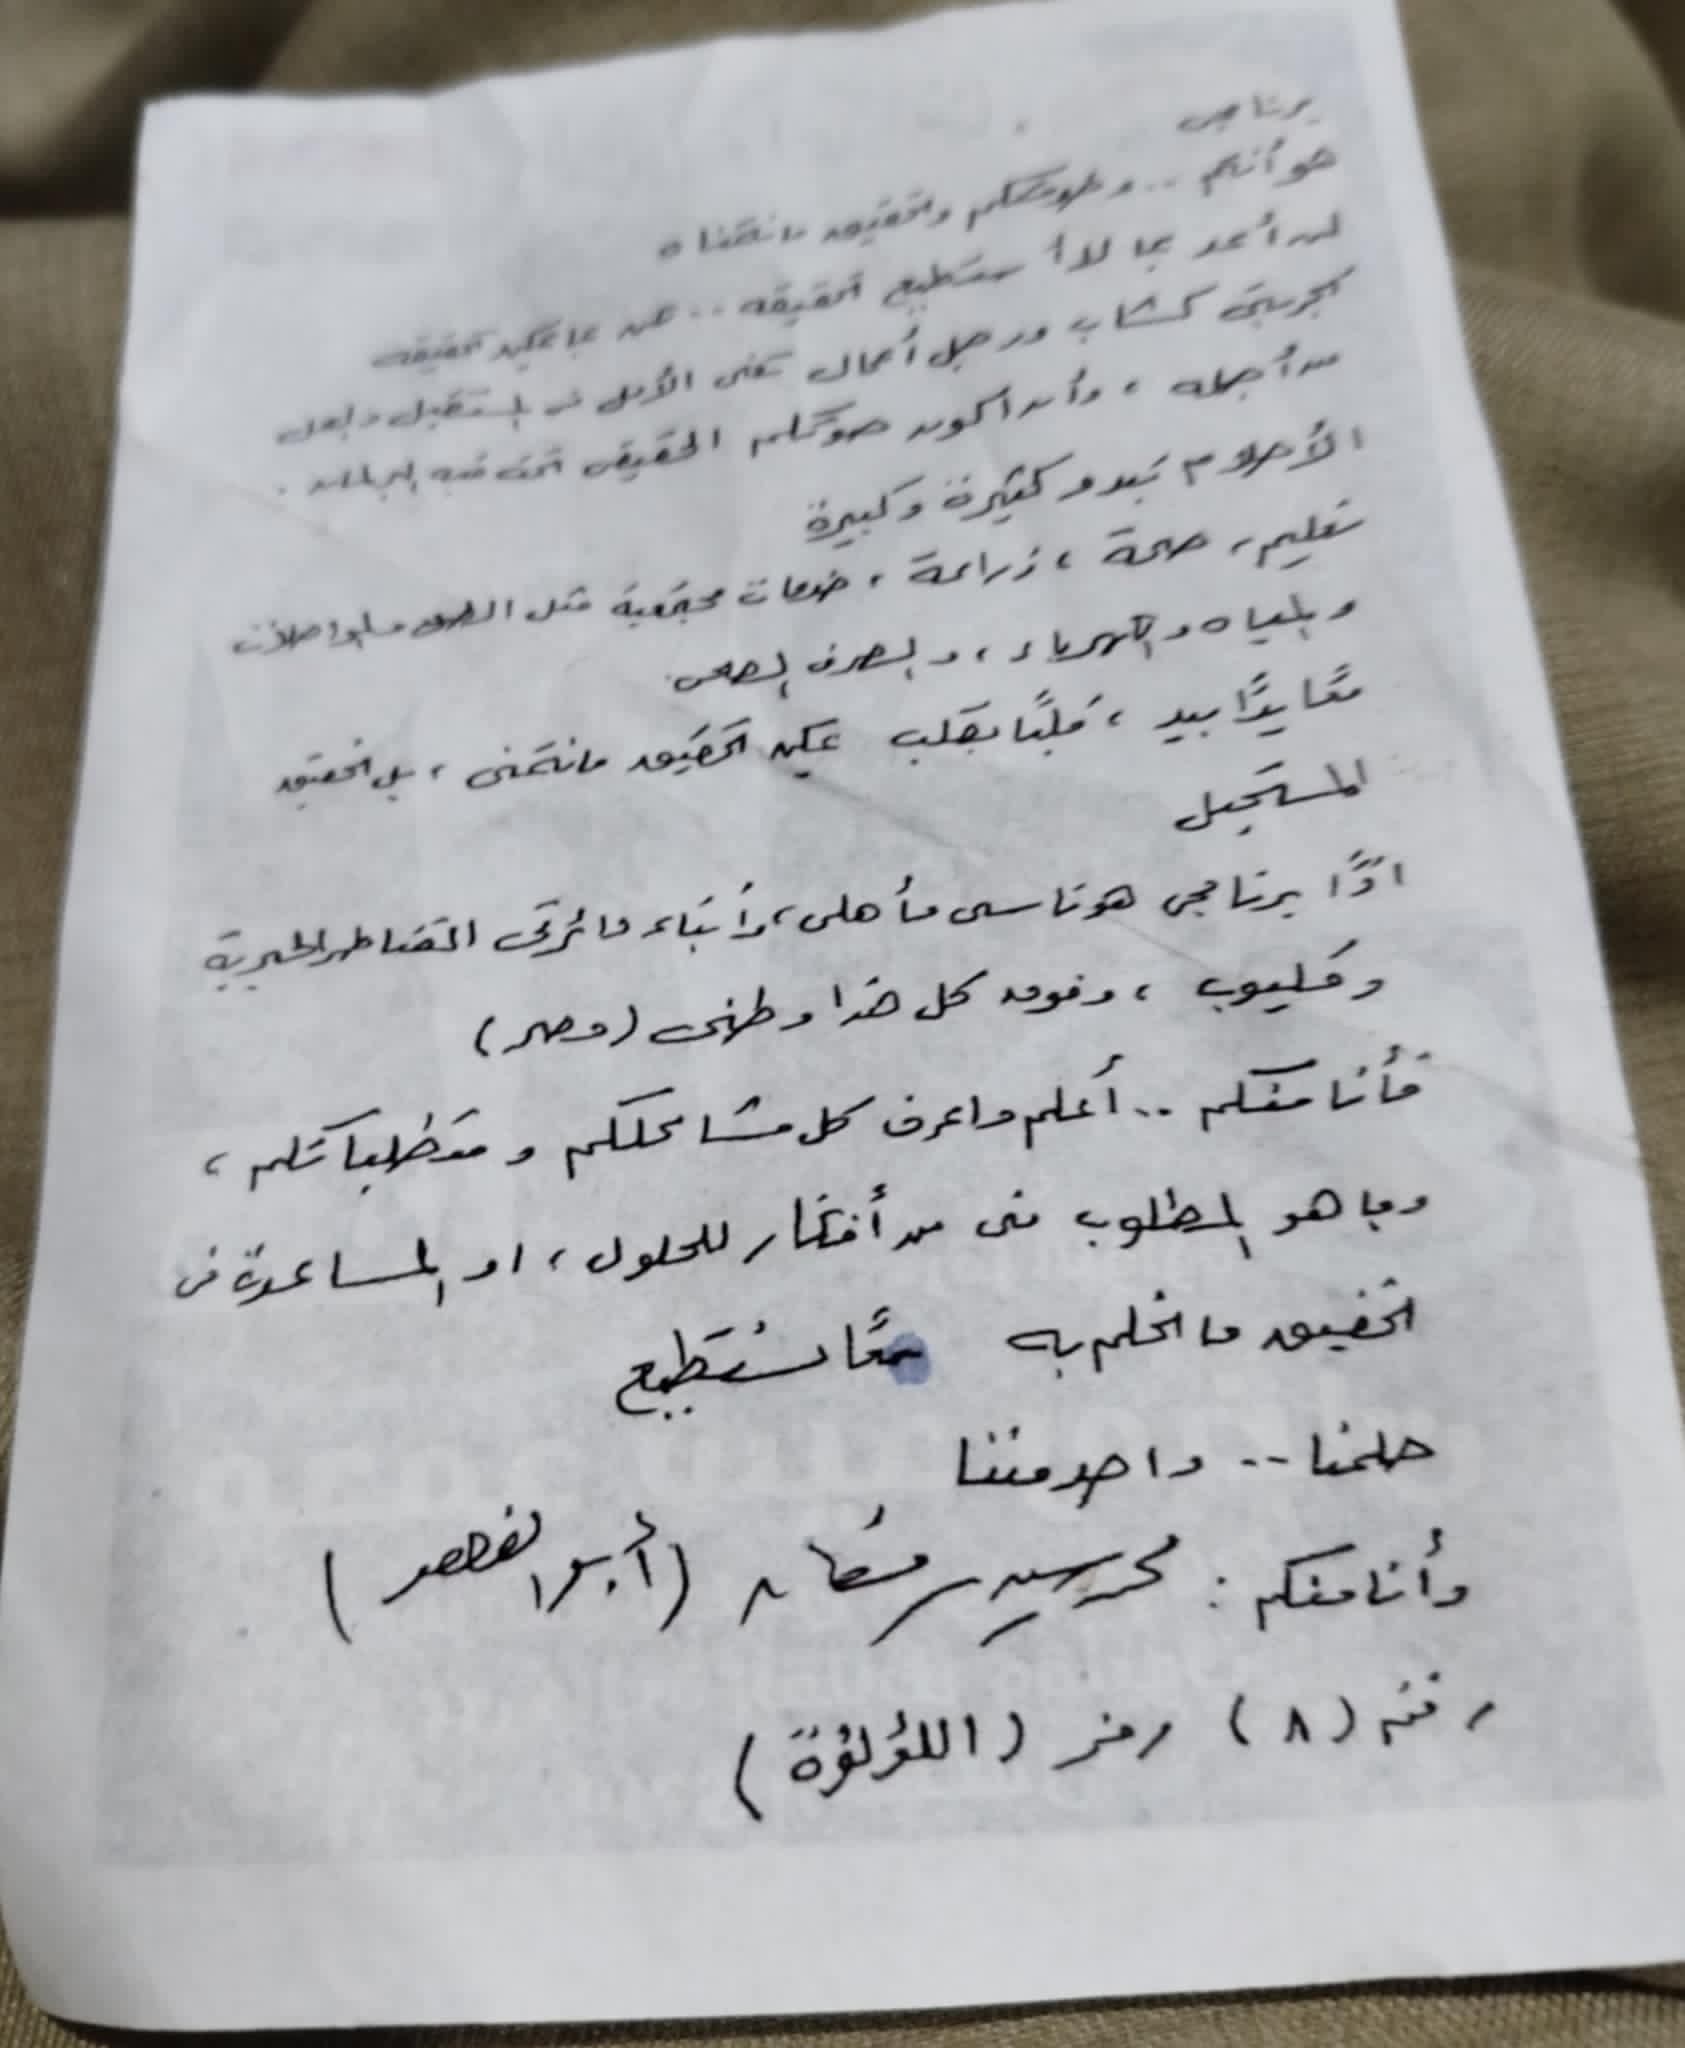 برنامجى
هو أنتم .. وطموحكم وتحقيق ما نتمناه
لن أعد بما لا أستطيع تحقيقه .. لكن بما يمكن تحقيقه
تجربتى كشاب ورجل أعمال تعنى الأمل فى المستقبل والعمل
من أجله ، وأن أكون صوتكم الحقيقى تحت قبة البرلمان .
الأحلام تبدو كثيرة وكبيرة
تعليم ، صحة ، زراعة ، خدمات مجتمعية مثل الطرق والمواصلات
والمياه والكهرباء ، والصرف الصحى
معًا يدًا بيد ، قلبًا بقلب يمكن تحقيق ما نتمنى ، بل تحقيق
المستحيل
اذًا برنامجى هو ناسى وأهلى ، وأبناء دائرتى القناطر الخيرية
وقليوب ، وفوق كل هذا وطنى (مصر)
فأنا منكم .. أعلم واعرف كل مشاكلكم ومتطلباتكم ،
وما هو المطلوب منى من أفكار للحلول ، او المساعدة فى
تحقيق ما نحلم به معًا نستطيع
حلمنا .. واحد مننا
وأنا منكم : محمد حسين (أبو الفهد)
رقم (٨) رمز (اللؤلؤة)